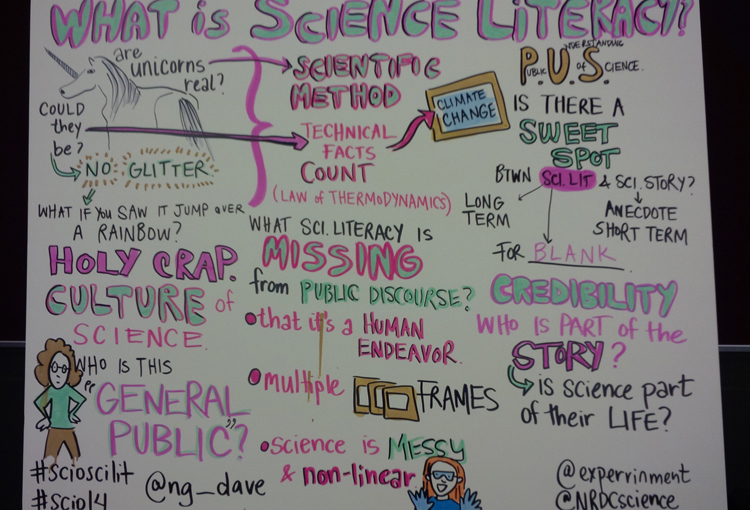 WHAT is SCIENCE LITERACY?
are
unicorns
real?
COULD
they
be?
NO GLITTER
WHAT if YOU SAW IT JUMP OVER
A RAINBOW?
HOLY CRAP.
CULTURE of
SCIENCE.
WHO IS THIS
"GENERAL
PUBLIC"?
#scioscilit
#scio14
@ng_dave
SCIENTIFIC
METHOD
TECHNICAL
FACTS
COUNT
(LAW of THERMODYNAMICS)
CLIMATE
CHANGE
WHAT SCI. LITERACY IS
MISSING
from PUBLIC DISCOURSE?
•that it's a HUMAN
ENDEAVOR.
•multiple FRAMES
•science is MESSY
& non-linear
PUBLIC UNDERSTANDING of SCIENCE.
IS THERE A
SWEET
SPOT
BTWN SCI.LIT & SCI.STORY?
LONG
TERM
ANECDOTE
SHORT TERM
FOR BLANK
CREDIBILITY
WHO IS PART of the
STORY?
is science part
of their LIFE?
@experrinment
@NRDCscience